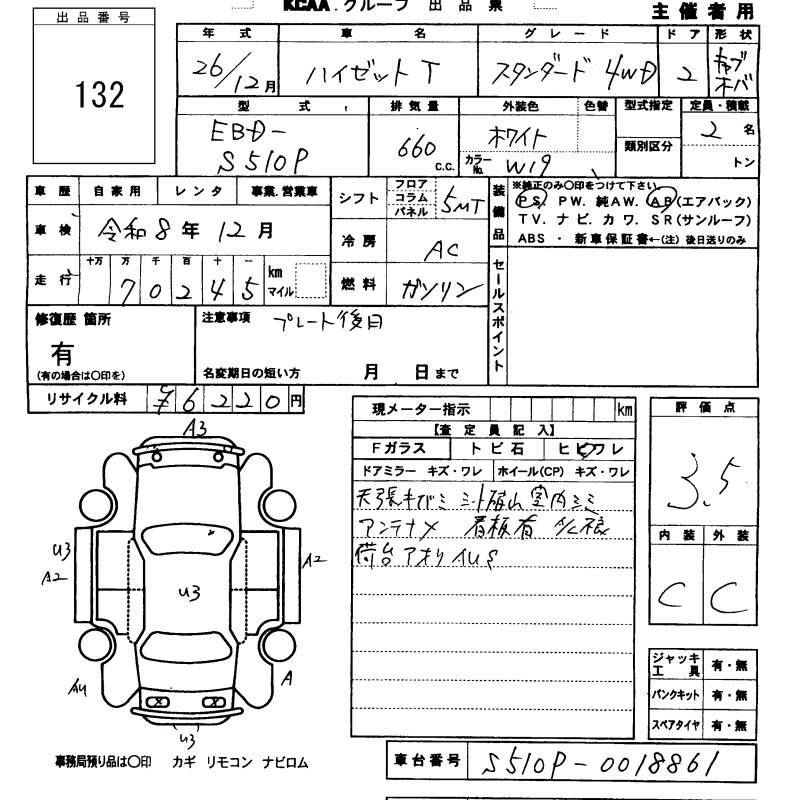 KCAA. グループ 出品票
主催者用
出品番号
132
年式 車名 グレード ドア 形状
26/12月 ハイゼットT スタンダード 4WD 2 キャブオーバ
型式 排気量 外装色 色替 型式指定 定員・積載
EBD-S510P 660 C.C. ホワイト 類別区分 2名
カラーNo. W19 トン
車歴 自家用 レンタ 事業.営業車
車検 令和8年12月
走行 十万 万 千 百 十 一 km マイル
70245
シフト フロア コラム パネル 5MT
冷房 AC
燃料 ガソリン
装備品 ※純正のみ〇印をつけて下さい。
PS. PW. 純AW. AB(エアバック)
TV. ナビ. カワ. SR(サンルーフ)
ABS ・ 新車保証書←(注) 後日送りのみ
セールスポイント
修復歴 箇所
有
(有の場合は〇印を)
注意事項 プレート後日
名変期日の短い方 月 日まで
リサイクル料 ¥6220円
現メーター指示 km
【査定員記入】
Fガラス トビ石 ヒビワレ
ドアミラー キズ・ワレ ホイール(CP) キズ・ワレ
室内
アンテナ 看板有
荷台アオリ
評価点
3.5
内装 外装
C C
ジャッキ工具 有・無
パンクキット 有・無
スペアタイヤ 有・無
A3
U3
A2
A2
U3
A
U3
事務局預り品は〇印 カギ リモコン ナビロム
車台番号 S510P-0018861